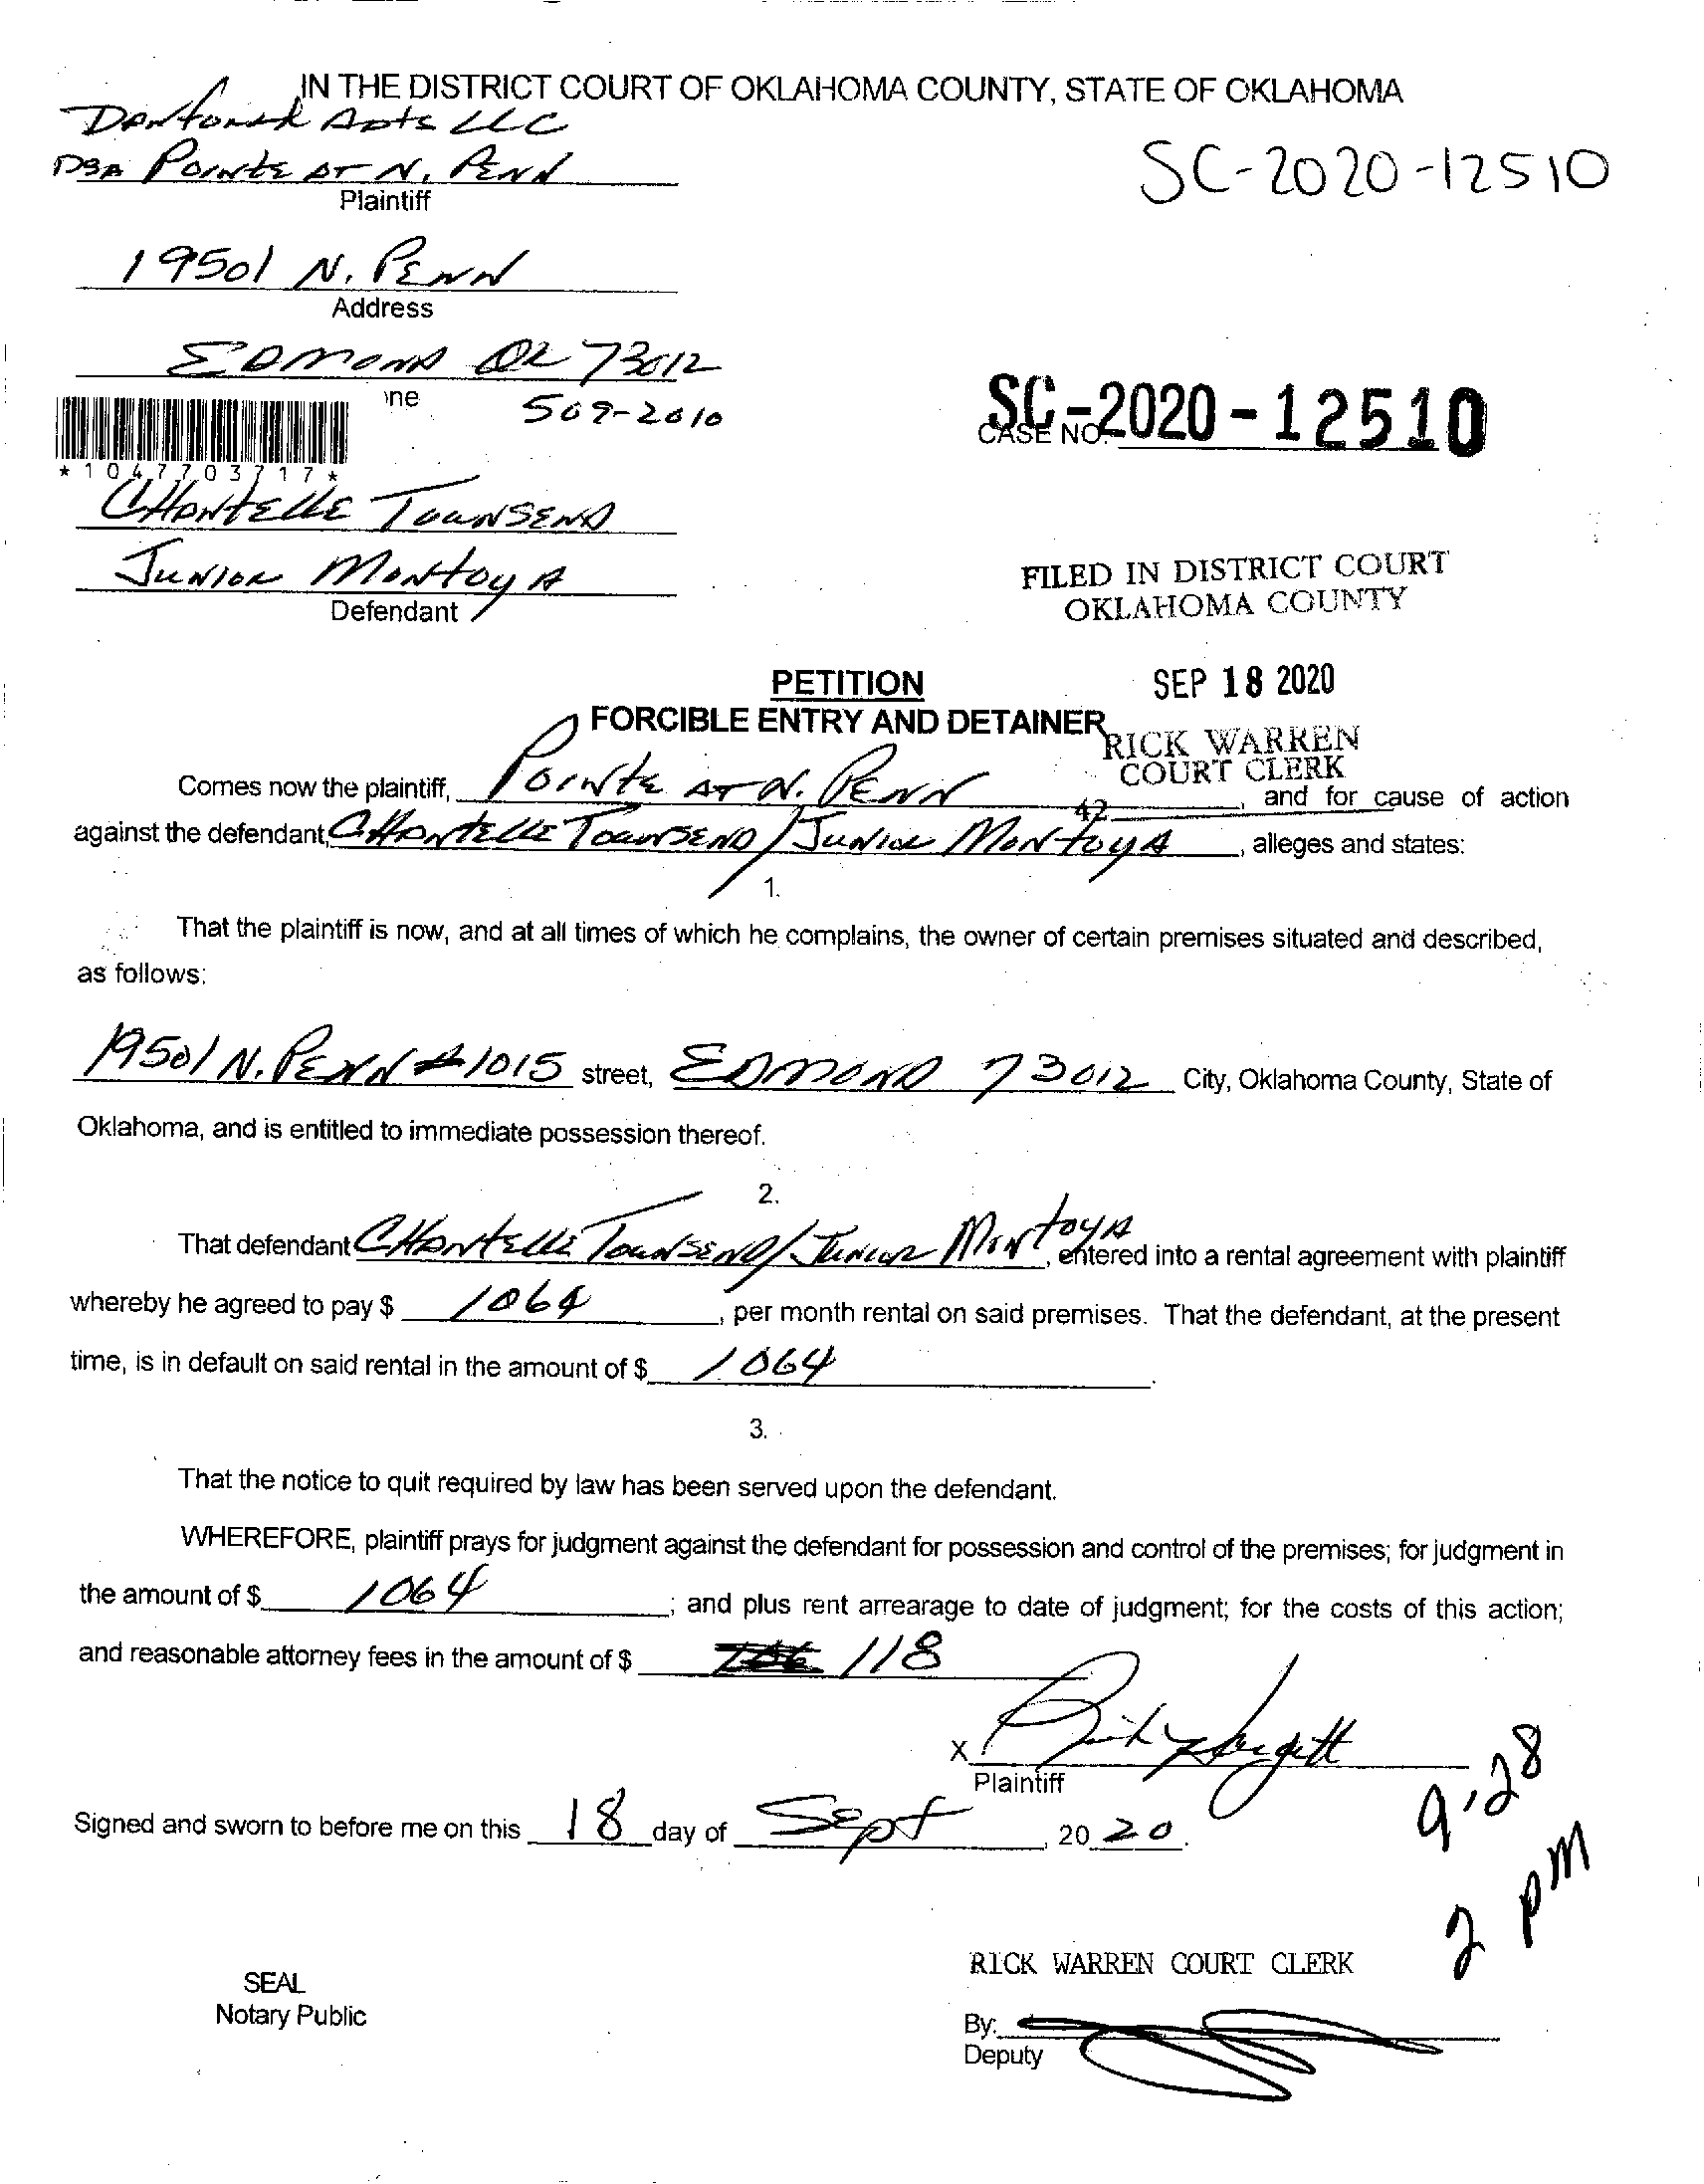 IN THE DISTRICT COURT OF OKLAHOMA COUNTY, STATE OF OKLAHOMA
Apts LLC
DBA Pointe at N. Penn
Plaintiff
SC-2020-12510
19501 N. Penn
Address
Edmond OK 73012
ne
509-2010
SC-2020-12510
CASE NO.
*1047703717*
Chantelle Townsend
Junior Montoya
Defendant
FILED IN DISTRICT COURT
OKLAHOMA COUNTY
PETITION
SEP 18 2020
FORCIBLE ENTRY AND DETAINER
RICK WARREN
COURT CLERK
42
Comes now the plaintiff, Pointe at N. Penn, and for cause of action
against the defendant, Chantelle Townsend / Junior Montoya, alleges and states:
1.
That the plaintiff is now, and at all times of which he complains, the owner of certain premises situated and described,
as follows:
19501 N. Penn #1015 street, Edmond 73012 City, Oklahoma County, State of
Oklahoma, and is entitled to immediate possession thereof.
2.
That defendant Chantelle Townsend / Junior Montoya, entered into a rental agreement with plaintiff
whereby he agreed to pay $ 1064, per month rental on said premises. That the defendant, at the present
time, is in default on said rental in the amount of $ 1064.
3.
That the notice to quit required by law has been served upon the defendant.
WHEREFORE, plaintiff prays for judgment against the defendant for possession and control of the premises; for judgment in
the amount of $ 1064; and plus rent arrearage to date of judgment; for the costs of this action;
and reasonable attorney fees in the amount of $ 118
X
Plaintiff
9.28
2 pm
Signed and sworn to before me on this 18 day of Sept, 20 20.
RICK WARREN COURT CLERK
SEAL
Notary Public
By:
Deputy